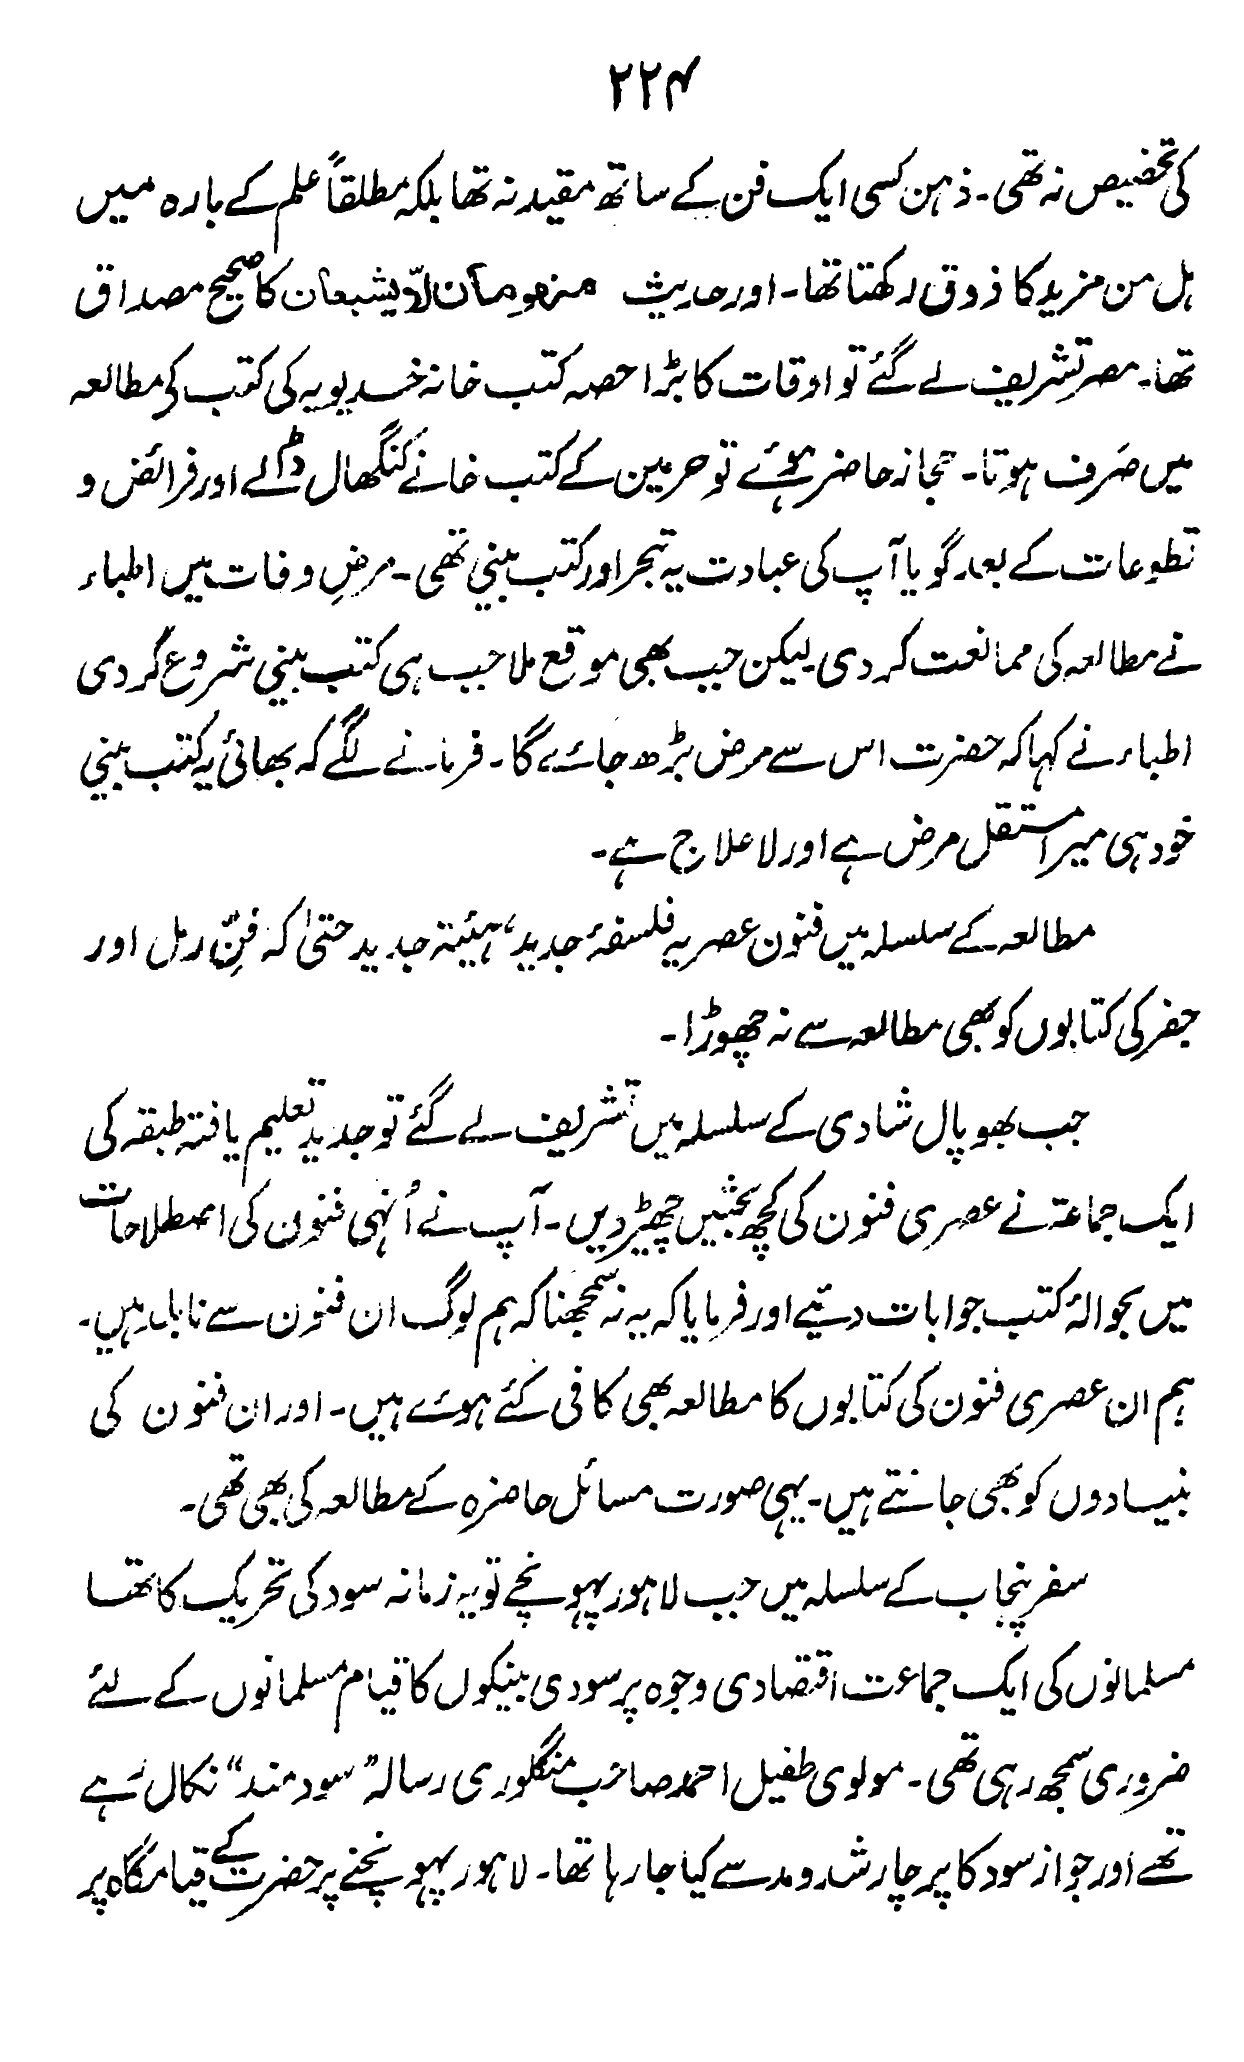 ۲۲۴
کی تخصیص نہ تھی۔ ذہن کسی ایک فن کے ساتھ مقید نہ تھا بلکہ مطلقاً علم کے بارہ میں
ہل من مزید کا ذوق رکھتا تھا۔ اور حدیث منہومان لا یشبعان کا صحیح مصداق
تھا۔ مصر تشریف لے گئے تو اوقات کا بڑا حصہ کتب خانہ خدیویہ کی کتب کی مطالعہ
میں صَرف ہوتا۔ حجاز حاضر ہوئے تو حرمین کے کتب خانے کنگھال ڈالے اور فرائض و
تطوعات کے بعد گویا آپ کی عبادت یہ تبحر اور کتب بینی تھی۔ مرضِ وفات میں اطباء
نے مطالعہ کی ممانعت کر دی لیکن جب بھی موقع ملا جب ہی کتب بینی شروع کر دی
اطباء نے کہا کہ حضرت اس سے مرض بڑھ جائے گا۔ فرمانے لگے کہ بھائی یہ کتب بینی
خود ہی میرا مستقل مرض ہے اور لا علاج ہے۔
مطالعہ کے سلسلہ میں فنون عصریہ فلسفۂ جدید، ہیئۃ جدید حتیٰ کہ فنِّ رمل اور
جفر کی کتابوں کو بھی مطالعہ سے نہ چھوڑا۔
جب بھوپال شادی کے سلسلہ میں تشریف لے گئے تو جدید تعلیم یافتہ طبقہ کی
ایک جماعۃ نے عصری فنون کی کچھ بحثیں چھیڑ دیں۔ آپ نے اُنہی فنون کی اصطلاحات
میں بحوالۂ کتب جوابات دیئے اور فرمایا کہ یہ نہ سمجھنا کہ ہم لوگ ان فنون سے نابلد ہیں۔
ہم ان عصری فنون کی کتابوں کا مطالعہ بھی کافی کئے ہوئے ہیں۔ اور ان فنون کی
بنیادوں کو بھی جانتے ہیں۔ یہی صورت مسائل حاضرہ کے مطالعہ کی بھی تھی۔
سفر پنجاب کے سلسلہ میں جب لاہور پہونچے تو یہ زمانہ سود کی تحریک کا تھا
مسلمانوں کی ایک جماعت اقتصادی وجوہ پر سودی بینکوں کا قیام مسلمانوں کے لئے
ضروری سمجھ رہی تھی۔ مولوی طفیل احمد صاحب منگلوری رسالہ "سود مند" نکال رہے
تھے اور جواز سود کا پرچار شد و مد سے کیا جا رہا تھا۔ لاہور پہونچنے پر حضرت کے قیامگاہ پر